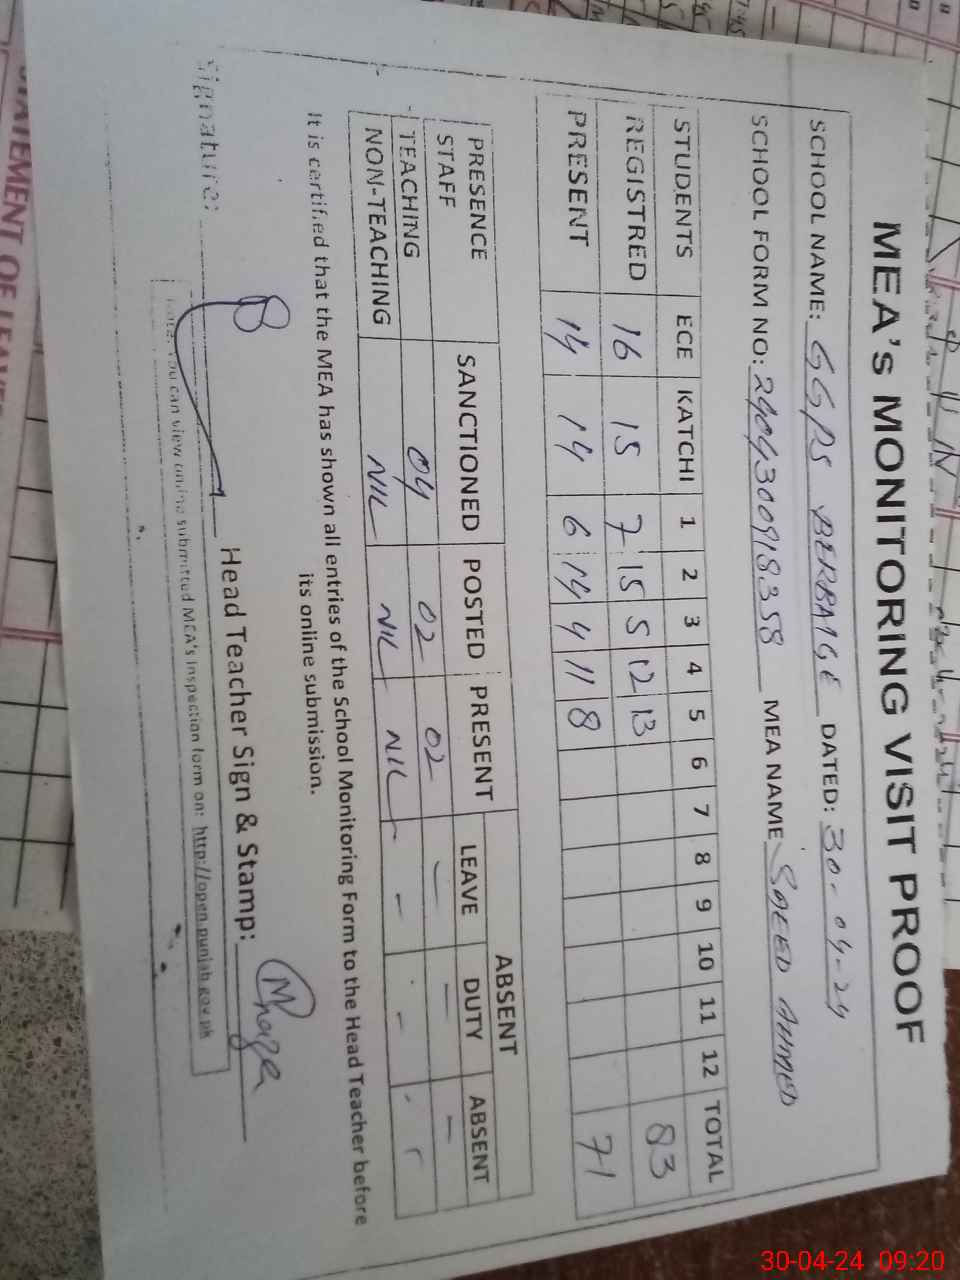 MEA's MONITORING VISIT PROOF
SCHOOL NAME: GGPS BERBAIGE DATED: 30-04-24
SCHOOL FORM NO: 2904300918358 MEA NAME SAEED AHMED
STUDENTS ECE KATCHI 1 2 3 4 5 6 7 8 9 10 11 12 TOTAL
REGISTRED 16 15 7 15 5 12 13 83
PRESENT 14 14 6 14 4 11 8 71
PRESENCE SANCTIONED POSTED PRESENT ABSENT
STAFF LEAVE DUTY ABSENT
TEACHING 04 02 02 - - -
NON-TEACHING NIL NIL NIL - - - -
It is certified that the MEA has shown all entries of the School Monitoring Form to the Head Teacher before
its online submission.
Signature: Head Teacher Sign & Stamp:
you can view online submitted MEA's Inspection form on: http://open.punjab.gov.pk
STATEMENT OF LEAVES
30-04-24 09:20